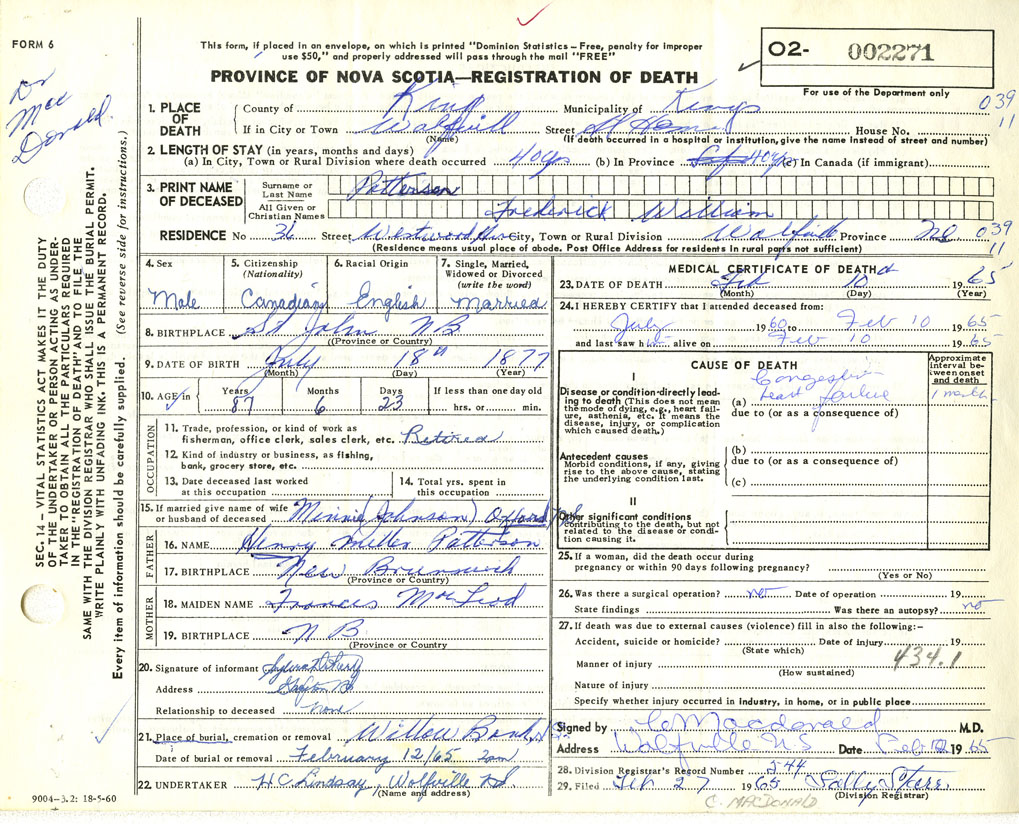 FORM 6
This form, if placed in an envelope, on which is printed "Dominion Statistics – Free, penalty for improper
use $50," and properly addressed will pass through the mail "FREE"
PROVINCE OF NOVA SCOTIA—REGISTRATION OF DEATH
O2- 002271
For use of the Department only
Dr
Mac
Donald.
039
11
1. PLACE OF DEATH
County of Kings Municipality of Kings
If in City or Town Wolfville Street House No.
(Name) (If death occurred in a hospital or institution, give the name instead of street and number)
2. LENGTH OF STAY (in years, months and days)
(a) In City, Town or Rural Division where death occurred 40yr (b) In Province 40yr (c) In Canada (if immigrant)
3. PRINT NAME OF DECEASED
Surname or Last Name Patterson
All Given or Christian Names Frederick William
RESIDENCE No 36 Street Westwood City, Town or Rural Division Wolfville Province NS 039
11
(Residence means usual place of abode. Post Office Address for residents in rural parts not sufficient)
4. Sex Male
5. Citizenship (Nationality) Canadian
6. Racial Origin English
7. Single, Married, Widowed or Divorced (write the word) Married
8. BIRTHPLACE St John NB
(Province or Country)
9. DATE OF BIRTH July 18th 1877
(Month) (Day) (Year)
10. AGE in Years 87 Months 6 Days 23 If less than one day old hrs. or min.
OCCUPATION
11. Trade, profession, or kind of work as
fisherman, office clerk, sales clerk, etc. Retired
12. Kind of industry or business, as fishing,
bank, grocery store, etc.
13. Date deceased last worked at this occupation
14. Total yrs. spent in this occupation
15. If married give name of wife
or husband of deceased Minnie (Johnson)
FATHER
16. NAME Henry Miller Patterson
17. BIRTHPLACE New Brunswick
(Province or Country)
MOTHER
18. MAIDEN NAME Frances MacLeod
19. BIRTHPLACE N B
(Province or Country)
20. Signature of informant
Address Grafton NS
Relationship to deceased none
21. Place of burial, cremation or removal Willow Bank
Date of burial or removal February 12/65
22. UNDERTAKER H C Lindsay Wolfville N.S.
(Name and address)
9004-3.2: 18-5-60
MEDICAL CERTIFICATE OF DEATH
23. DATE OF DEATH Feb 10 1965
(Month) (Day) (Year)
24. I HEREBY CERTIFY that I attended deceased from:
July 1960 to Feb 10 1965
and last saw him alive on Feb 10 1965
CAUSE OF DEATH
Approximate interval between onset and death
I
Disease or condition directly leading to death (This does not mean the mode of dying, e.g., heart failure, asthenia, etc. It means the disease, injury, or complication which caused death.)
(a) Congestive heart failure 1 month
due to (or as a consequence of)
Antecedent causes
Morbid conditions, if any, giving rise to the above cause, stating the underlying condition last.
(b)
due to (or as a consequence of)
(c)
II
Other significant conditions contributing to the death, but not related to the disease or condition causing it.
25. If a woman, did the death occur during
pregnancy or within 90 days following pregnancy?
(Yes or No)
26. Was there a surgical operation? no Date of operation 19
State findings Was there an autopsy? no
27. If death was due to external causes (violence) fill in also the following:–
Accident, suicide or homicide? Date of injury 19
(State which)
434.1
Manner of injury
(How sustained)
Nature of injury
Specify whether injury occurred in industry, in home, or in public place
Signed by C Macdonald M.D.
Address Wolfville NS Date Feb 12 1965
28. Division Registrar's Record Number 544
29. Filed Feb 27 1965 Sally Starr
(Division Registrar)
C. MACDONALD
SEC. 14 – VITAL STATISTICS ACT MAKES IT THE DUTY
OF THE UNDERTAKER OR PERSON ACTING AS UNDERTAKER
TO OBTAIN ALL THE PARTICULARS REQUIRED
IN THE "REGISTRATION OF DEATH" AND TO FILE THE
SAME WITH THE DIVISION REGISTRAR WHO SHALL ISSUE THE BURIAL PERMIT.
WRITE PLAINLY WITH UNFADING INK. THIS IS A PERMANENT RECORD.
Every item of information should be carefully supplied. (See reverse side for instructions.)